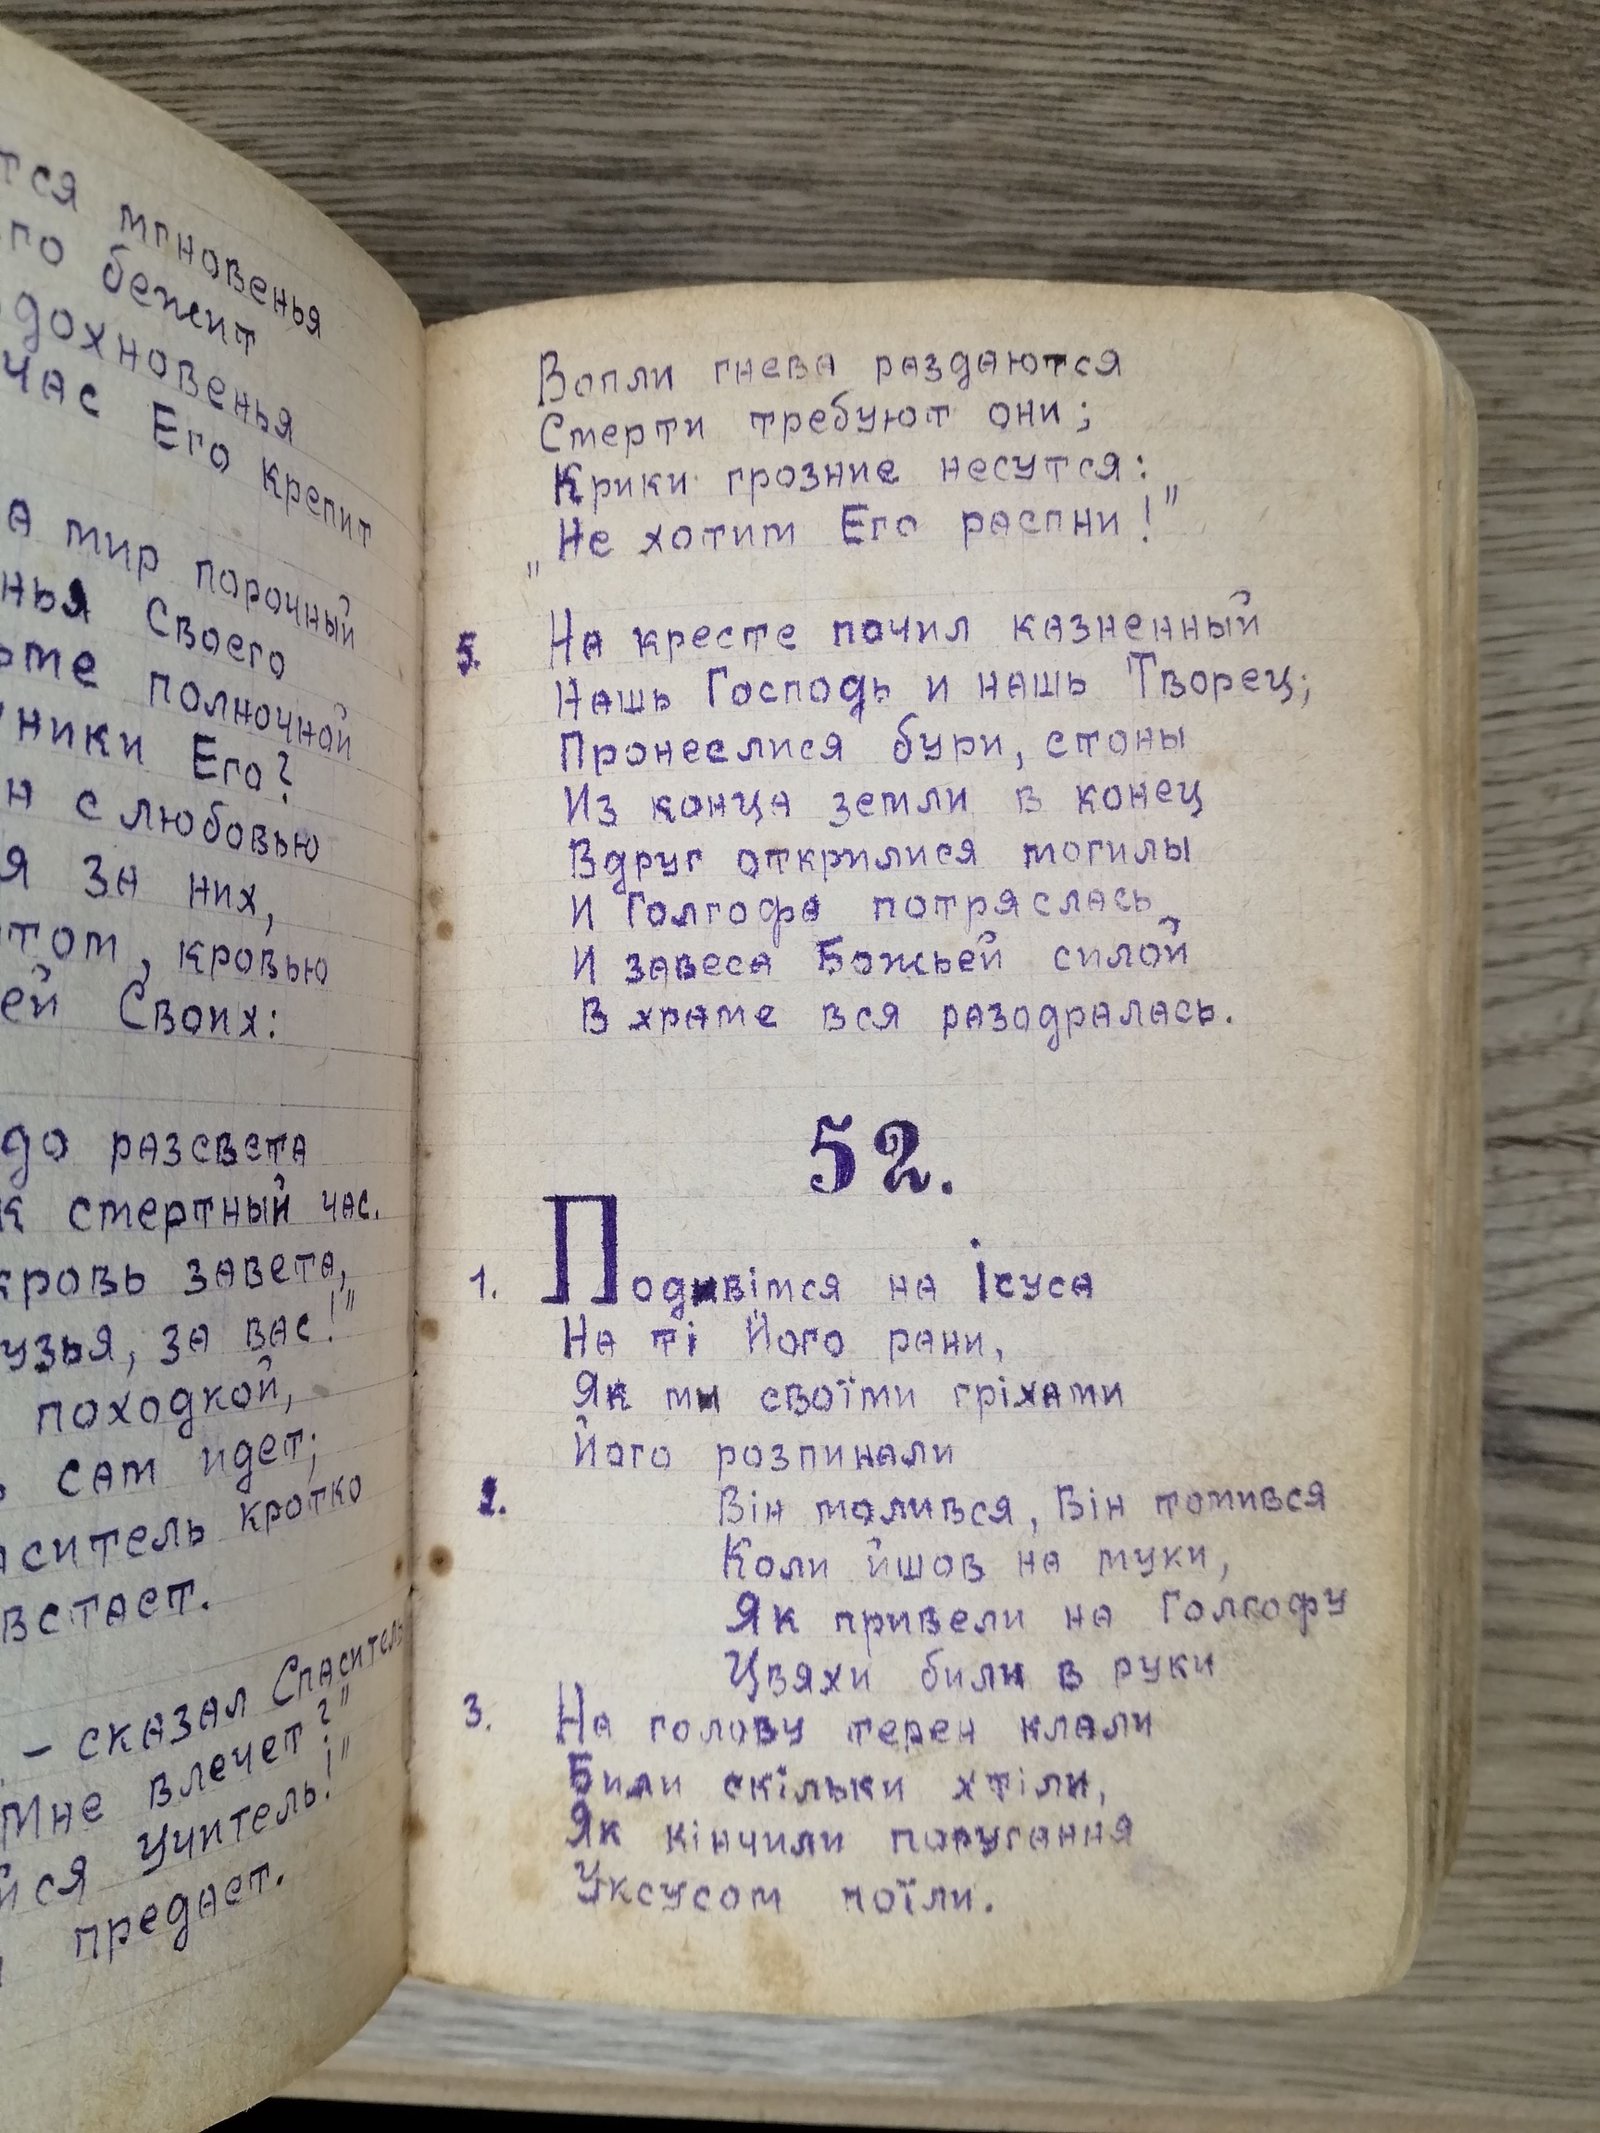 мгновенья
бежит
час Его крепит
мир порочный
Своего
полночной
Его?
с любовью
за них,
кровью
Своих:
до разсвета
к смертный час.
завета,
за вас!"
походкой,
сам идет;
кротко
встает.
– сказал Спаситель
Мне влечет?"
Учитель!"
предает.
Вопли гнева раздаются
Смерти требуют они;
Крики грозние несутся:
„Не хотим Его распни!"
5. На кресте почил казненный
Нашь Господь и нашь Творец;
Пронеслися бури, стоны
Из конца земли в конец
Вдруг открилися могилы
И Голгофа потряслась
И завеса Божьей силой
В храме вся разодралась.
52.
1. Подивімся на Ісуса
На ті Його рани,
Як ми своїми гріхами
Його розпинали
2. Він молився, Він томився
Коли йшов на муки,
Як привели на Голгофу
Цвяхи били в руки
3. На голову терен клали
Били скільки хтіли,
Як кінчили поругання
Уксусом поїли.